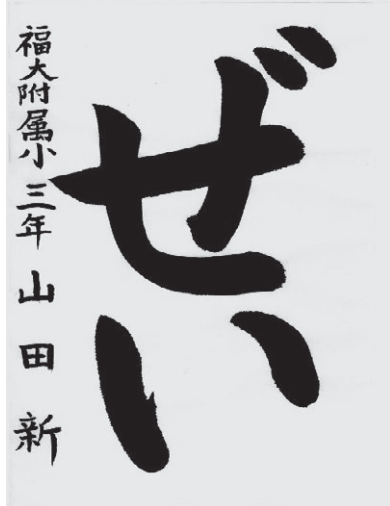 ぜい
福大附属小三年 山田新